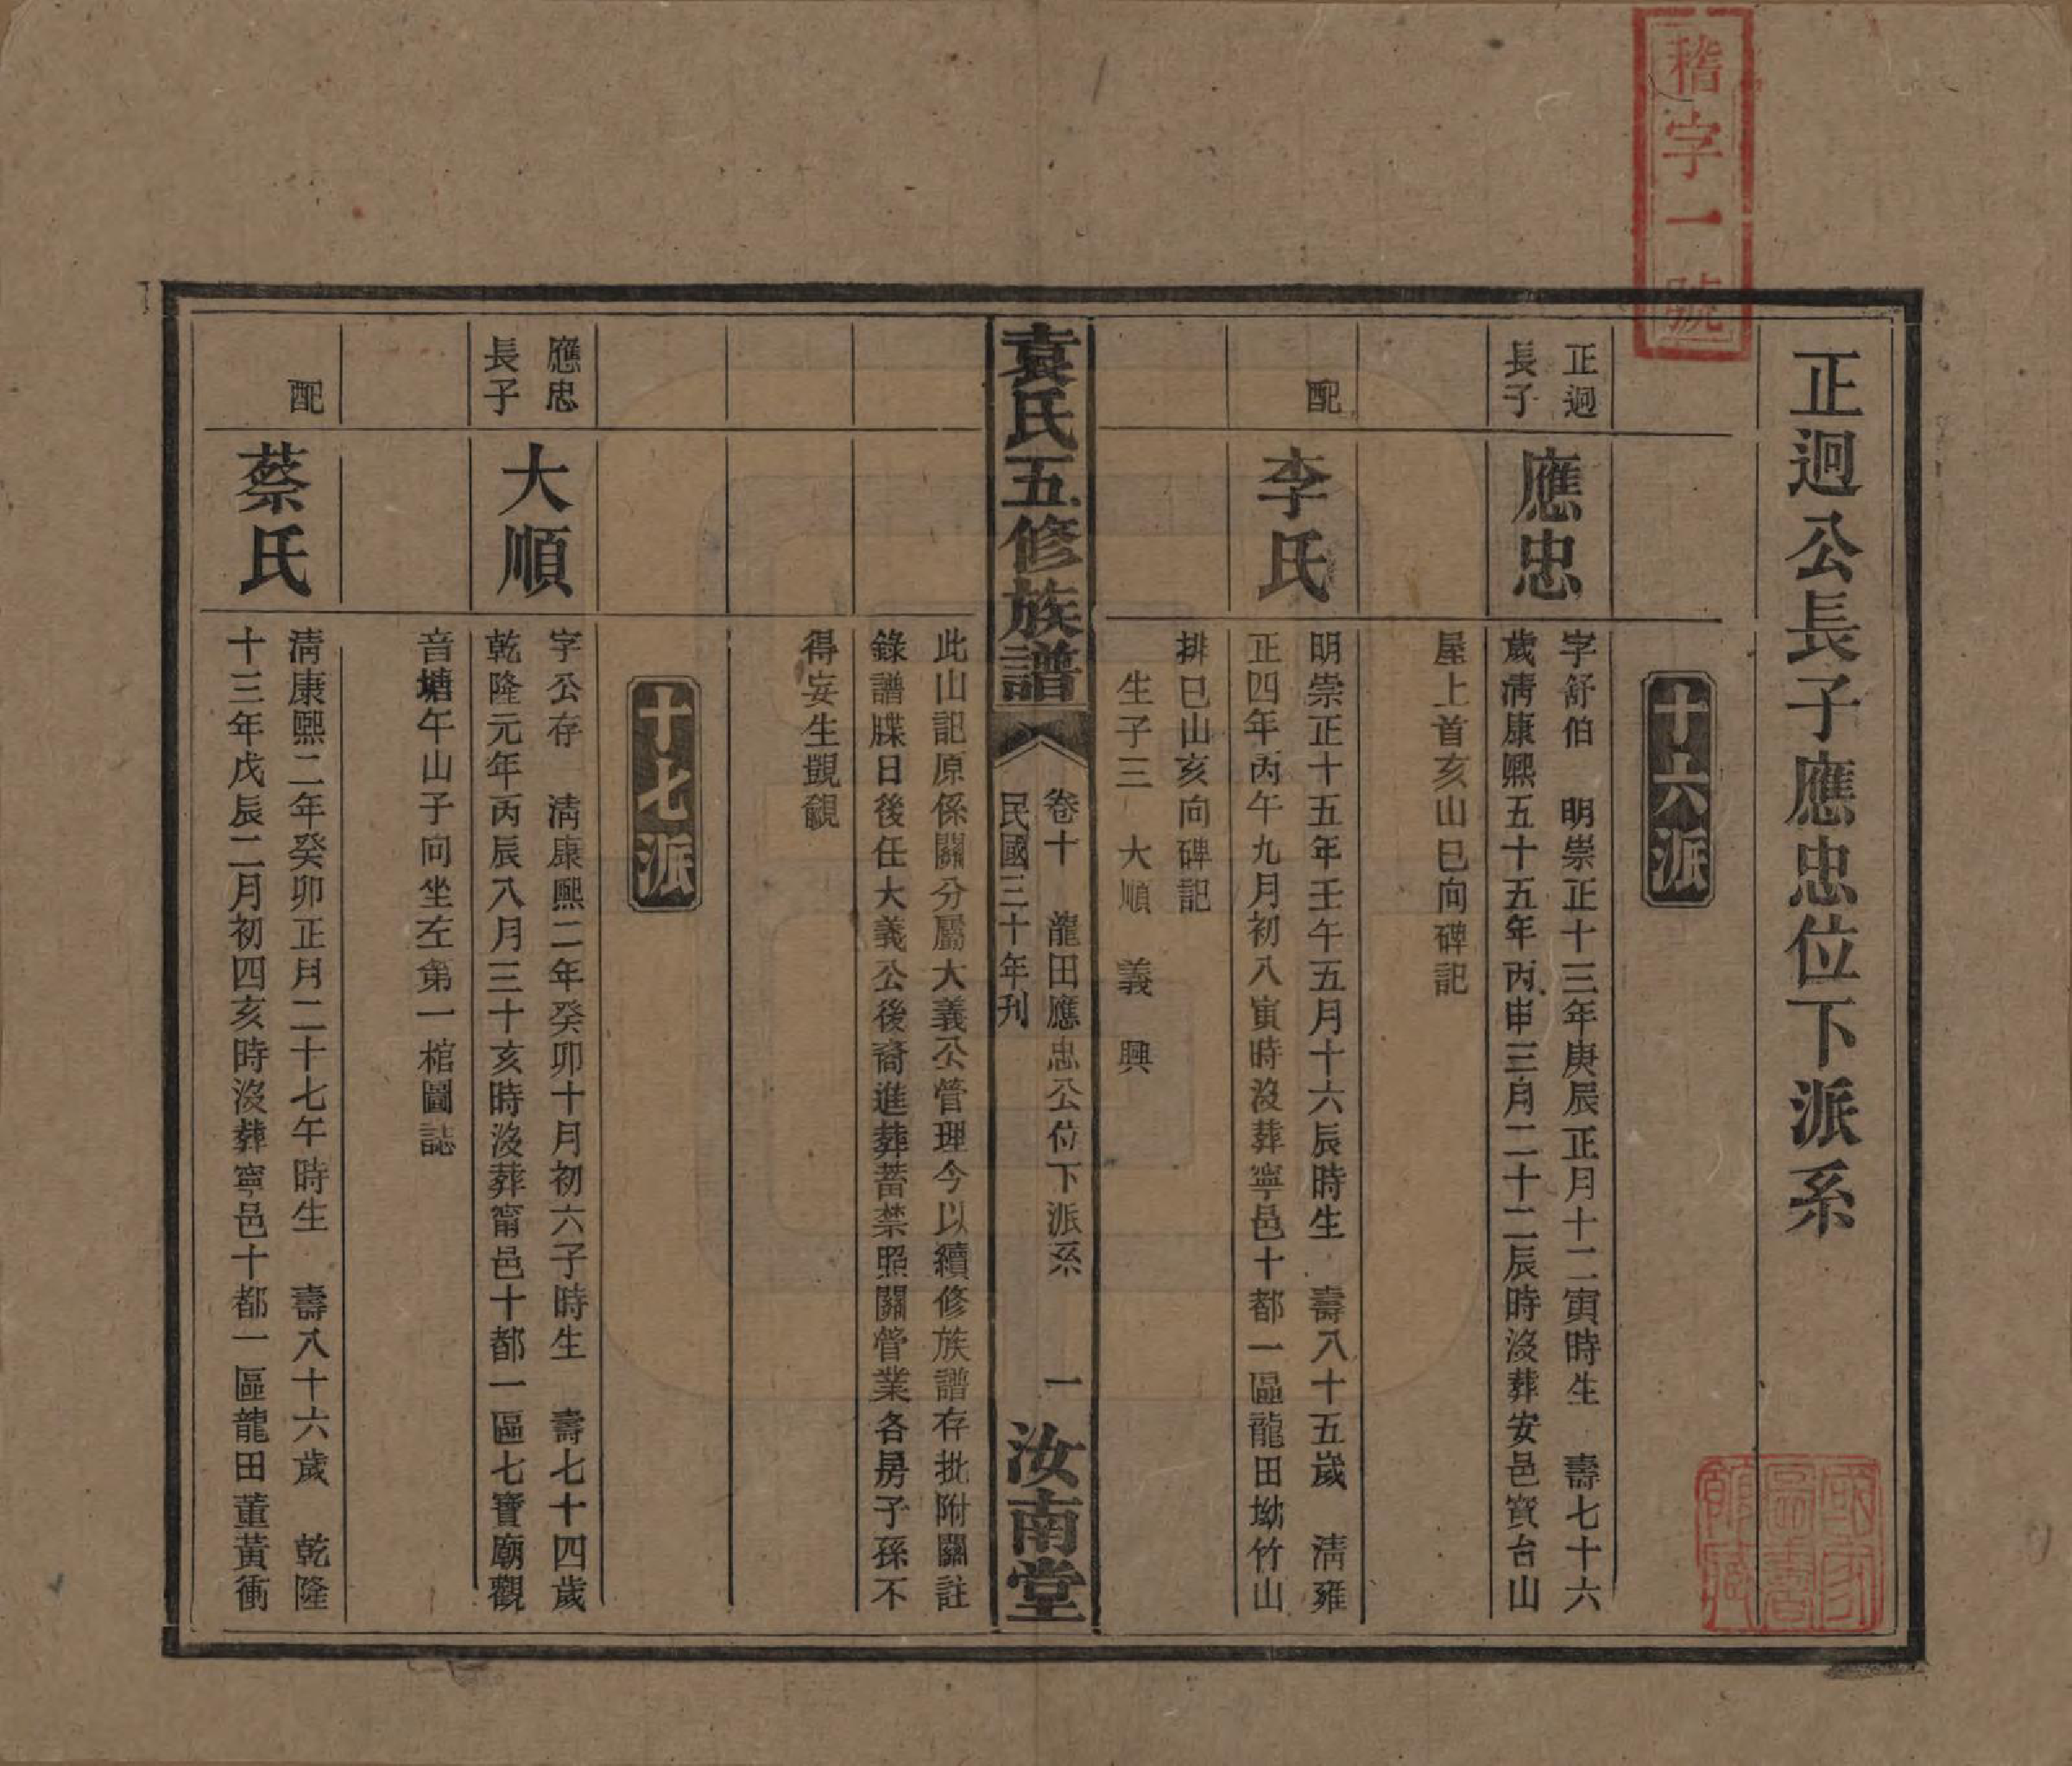 稽字一號
正迥公長子應忠位下派系
十六派
正迥
長子
應忠
字舒伯　明崇正十三年庚辰正月十二寅時生　壽七十六
歲淸康熙五十五年丙申三月二十二辰時沒葬安邑寳台山
屋上首亥山巳向碑記
配
李氏
明崇正十五年壬午五月十六辰時生　壽八十五歲　淸雍
正四年丙午九月初八寅時沒葬寧邑十都一區龍田坳竹山
排巳山亥向碑記
生子三　大順　義　興
袁氏五修族譜
卷十　龍田應忠公位下派系　一
民國三十年刊
汝南堂
此山記原係關分屬大義公管理今以續修族譜存批附關註
錄譜牒日後任大義公後裔進葬蓄禁照關管業各房子孫不
得妄生覬覦
十七派
應忠
長子
大順
字公存　淸康熙二年癸卯十月初六子時生　壽七十四歲
乾隆元年丙辰八月三十亥時沒葬甯邑十都一區七寶廟觀
音塘午山子向坐左第一棺圖誌
配
蔡氏
淸康熙二年癸卯正月二十七午時生　壽八十六歲　乾隆
十三年戊辰二月初四亥時沒葬寧邑十都一區龍田董黃衝